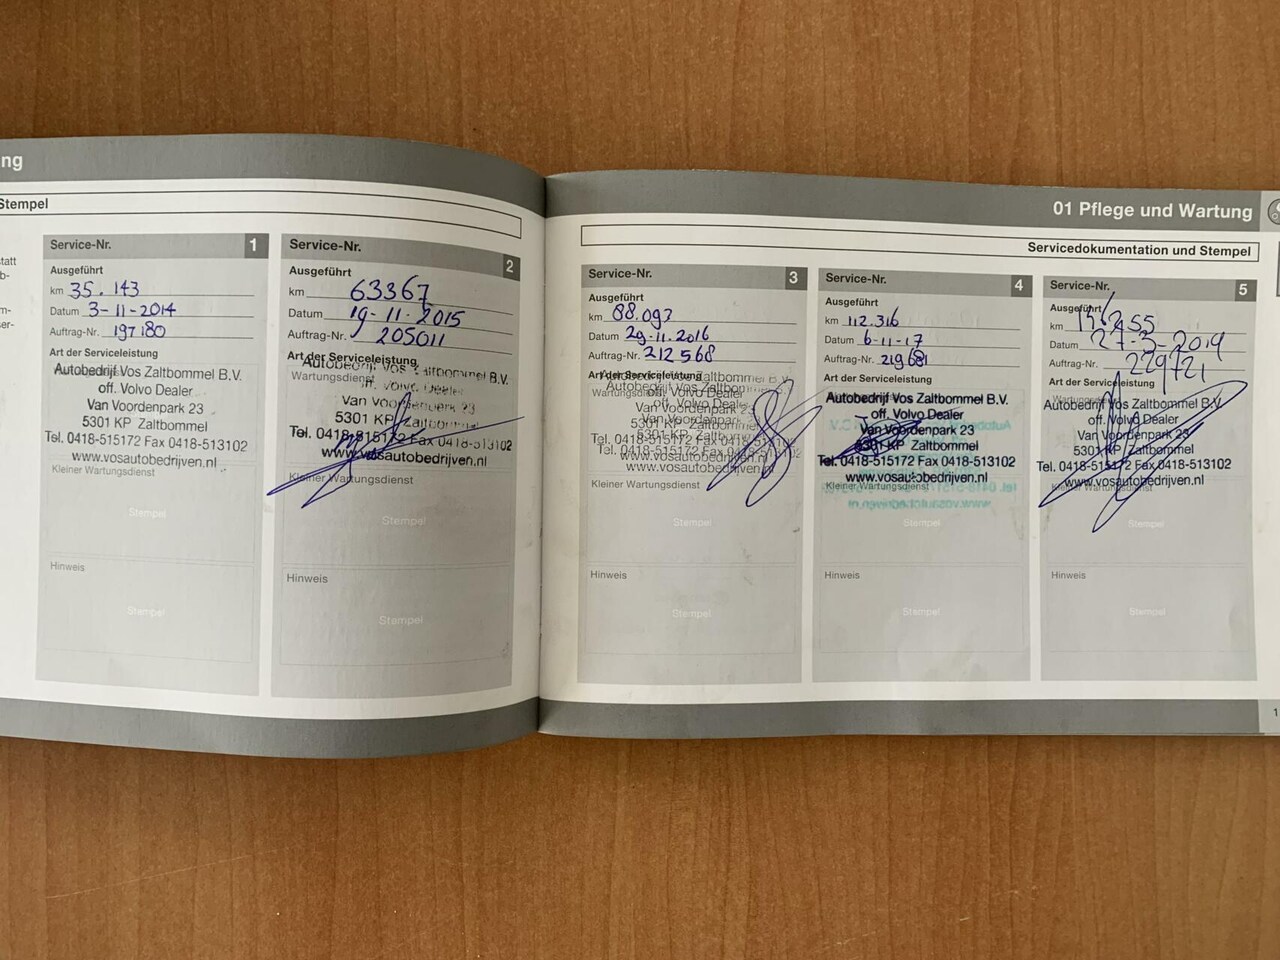 ng
Stempel
tatt
b-
m-
ser-
Service-Nr. 1
Ausgeführt
km 35.143
Datum 3-11-2014
Auftrag-Nr. 197180
Art der Serviceleistung
Autobedrijf Vos Zaltbommel B.V.
off. Volvo Dealer
Van Voordenpark 23
5301 KP Zaltbommel
Tel. 0418-515172 Fax 0418-513102
www.vosautobedrijven.nl
Kleiner Wartungsdienst
Stempel
Hinweis
Stempel
Service-Nr. 2
Ausgeführt
km 63367
Datum 19-11-2015
Auftrag-Nr. 205011
Art der Serviceleistung
Autobedrijf Vos Zaltbommel B.V.
Wartungsdienst
off. Volvo Dealer
Van Voordenpark 23
5301 KP Zaltbommel
Tel. 0418-515172 Fax 0418-513102
www.vosautobedrijven.nl
Kleiner Wartungsdienst
Stempel
Hinweis
Stempel
01 Pflege und Wartung
Servicedokumentation und Stempel
Service-Nr. 3
Ausgeführt
km 88.093
Datum 29-11-2016
Auftrag-Nr. 212568
Art der Serviceleistung
Autobedrijf Vos Zaltbommel B.V.
off. Volvo Dealer
Van Voordenpark 23
5301 KP Zaltbommel
Tel. 0418-515172 Fax 0418-513102
www.vosautobedrijven.nl
Kleiner Wartungsdienst
Stempel
Hinweis
Stempel
Service-Nr. 4
Ausgeführt
km 112.316
Datum 6-11-17
Auftrag-Nr. 219681
Art der Serviceleistung
Autobedrijf Vos Zaltbommel B.V.
off. Volvo Dealer
Van Voordenpark 23
5301 KP Zaltbommel
Tel. 0418-515172 Fax 0418-513102
www.vosautobedrijven.nl
Kleiner Wartungsdienst
Stempel
Hinweis
Stempel
Service-Nr. 5
Ausgeführt
km
Datum 27-3-2019
Auftrag-Nr. 229721
Art der Serviceleistung
Autobedrijf Vos Zaltbommel B.V.
off. Volvo Dealer
Van Voordenpark 23
5301 KP Zaltbommel
Tel. 0418-515172 Fax 0418-513102
www.vosautobedrijven.nl
Kleiner Wartungsdienst
Stempel
Hinweis
Stempel
1